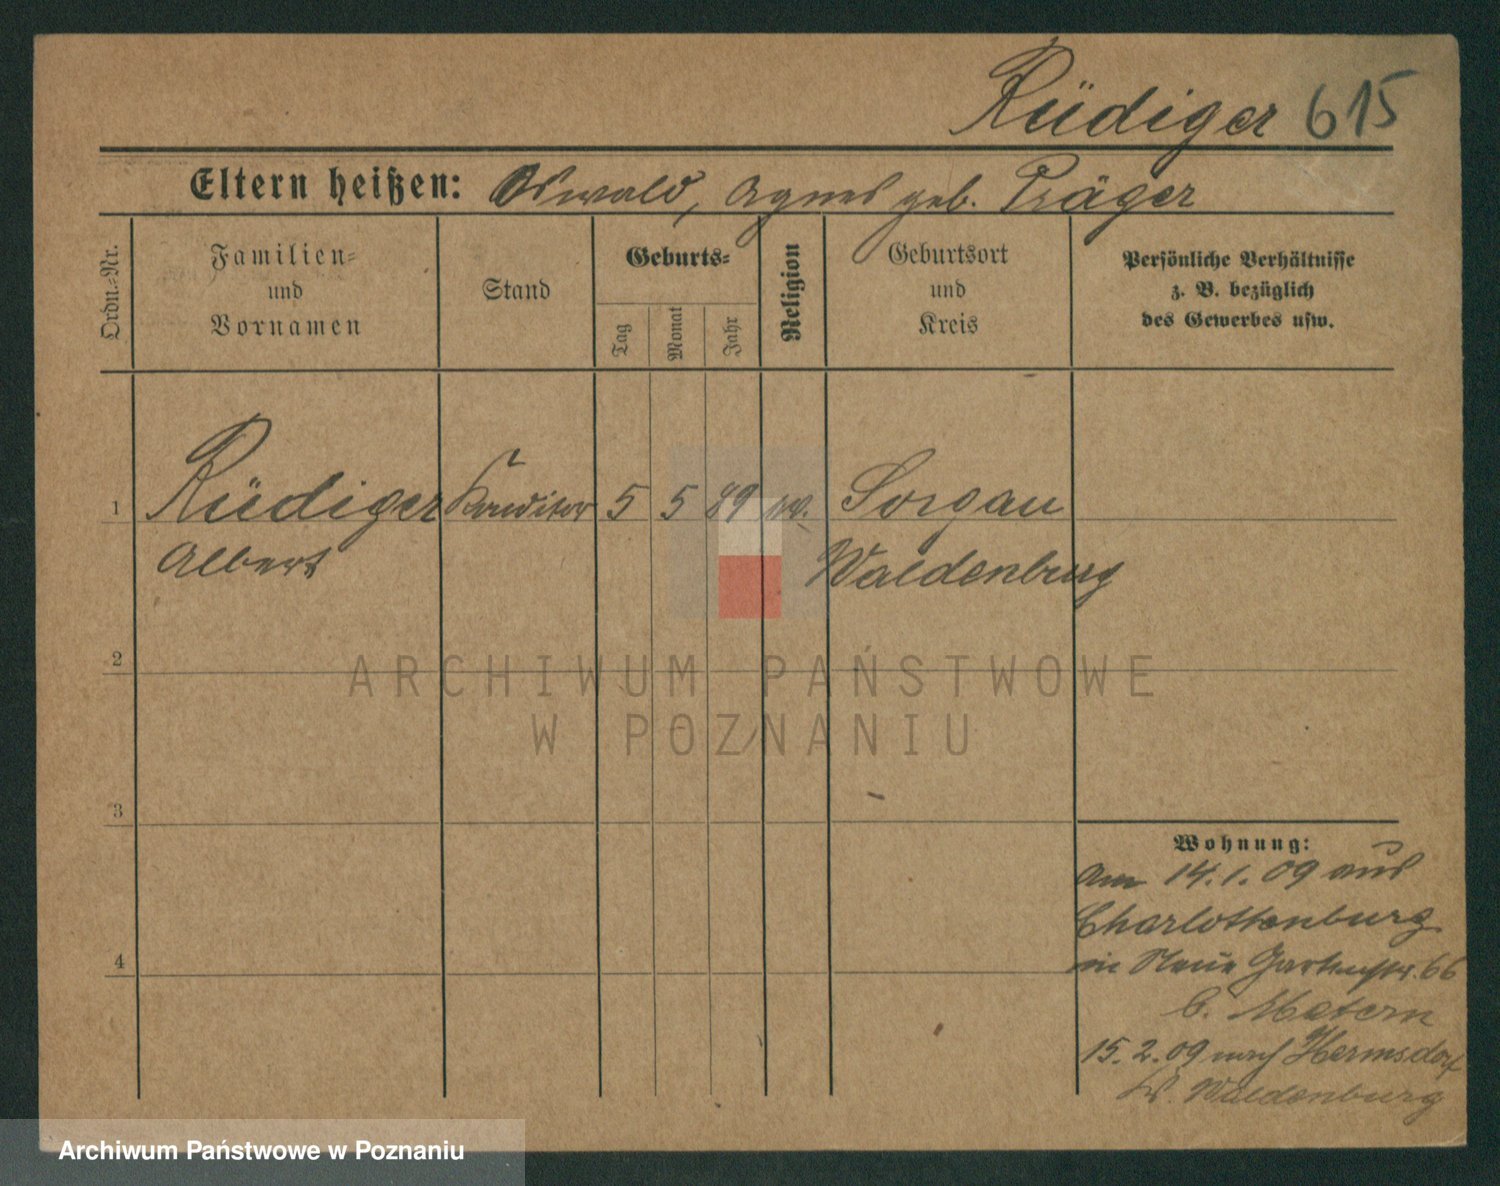 Rüdiger 615
Eltern heißen: Oswald, Agnes geb. Präger
Ordn.-Nr.
Familien-
und
Vornamen
Stand
Geburts-
Tag
Monat
Jahr
Religion
Geburtsort
und
Kreis
Persönliche Verhältnisse
z. B. bezüglich
des Gewerbes usw.
1 Rüdiger Konditor 5 5 89 ev. Sorgau
Albert Waldenburg
2
ARCHIWUM PAŃSTWOWE
W POZNANIU
3
Wohnung:
Am 14.1.09 aus
Charlottenburg
in Neue Gartenstr. 66
b. Matern
15.2.09 nach Hermsdorf
4
Waldenburg
Archiwum Państwowe w Poznaniu